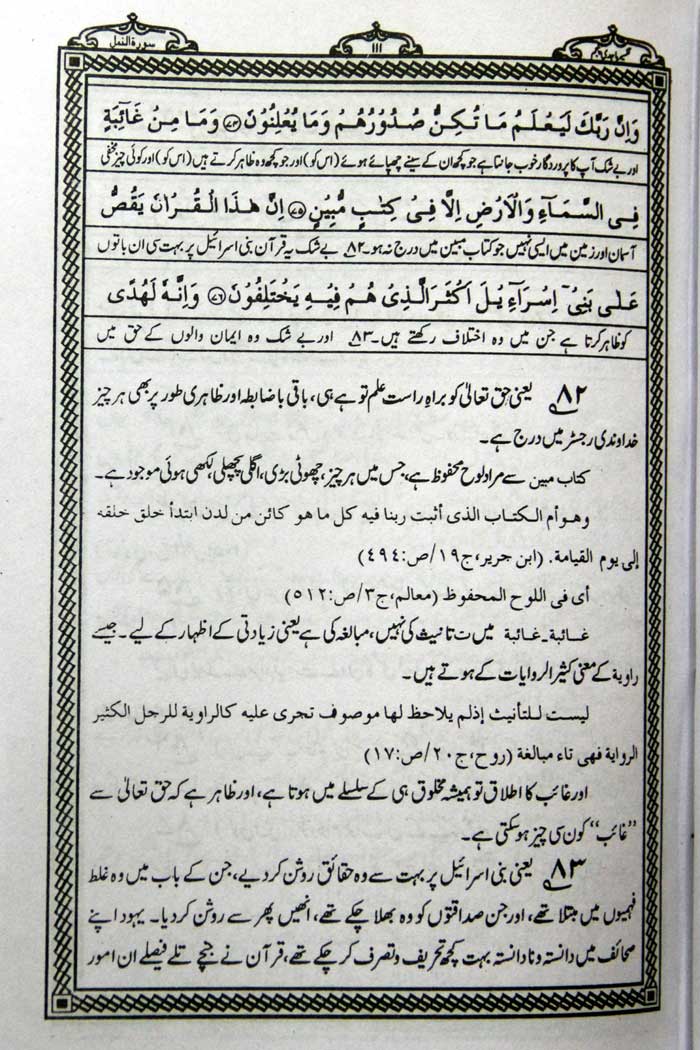 سورة النمل
۱۱۱
وَاِنَّ رَبَّكَ لَيَعْلَمُ مَا تُكِنُّ صُدُوْرُهُمْ وَمَا يُعْلِنُوْنَ ﴿۷۴﴾ وَمَا مِنْ غَآئِبَةٍ
اور بے شک آپ کا پروردگار خوب جانتا ہے جو کچھ ان کے سینے چھپائے ہوئے (اس کو) اور جو کچھ وہ ظاہر کرتے ہیں (اس کو) اور کوئی چیز مخفی
فِى السَّمَآءِ وَالْاَرْضِ اِلَّا فِىْ كِتٰبٍ مُّبِيْنٍ ﴿۷۵﴾ اِنَّ هٰذَا الْقُرْاٰنَ يَقُصُّ
آسمان اور زمین میں ایسی نہیں جو کتاب مبین میں درج نہ ہو۔ ۸۲ بے شک یہ قرآن بنی اسرائیل پر بہت سی ان باتوں
عَلٰى بَنِىْٓ اِسْرَآءِيْلَ اَكْثَرَ الَّذِىْ هُمْ فِيْهِ يَخْتَلِفُوْنَ ﴿۷۶﴾ وَاِنَّهٗ لَهُدًى
کو ظاہر کرتا ہے جن میں وہ اختلاف رکھتے ہیں۔ ۸۳ اور بے شک وہ ایمان والوں کے حق میں
۸۲ یعنی حق تعالیٰ کو براہِ راست علم تو ہے ہی، باقی باضابطہ اور ظاہری طور پر بھی ہر چیز
خداوندی رجسٹر میں درج ہے۔
کتاب مبین سے مراد لوح محفوظ ہے، جس میں ہر چیز، چھوٹی بڑی، اگلی پچھلی، لکھی ہوئی موجود ہے۔
وهو أم الكتاب الذى أثبت ربنا فيه كل ما هو كائن من لدن ابتدأ خلق خلقه
إلى يوم القيامة. (ابن جرير، ج۱۹/ص:۴۹۴)
أى فى اللوح المحفوظ (معالم، ج۳/ص:۵۱۲)
غائبة۔ غائبة میں ت تانیث کی نہیں، مبالغہ کی ہے یعنی زیادتی کے اظہار کے لیے۔ جیسے
راویة کے معنی کثیر الروایات کے ہوتے ہیں۔
ليست للتأنيث إذلم يلاحظ لها موصوف تجرى عليه كالراوية للرجل الكثير
الرواية فهى تاء مبالغة (روح، ج۲۰/ص:۱۷)
اور غائب کا اطلاق تو ہمیشہ مخلوق ہی کے سلسلے میں ہوتا ہے، اور ظاہر ہے کہ حق تعالیٰ سے
”غائب“ کون سی چیز ہوسکتی ہے۔
۸۳ یعنی بنی اسرائیل پر بہت سے وہ حقائق روشن کردیے، جن کے باب میں وہ غلط
فہمیوں میں مبتلا تھے، اور جن صداقتوں کو وہ بھلا چکے تھے، انھیں پھر سے روشن کردیا۔ یہود اپنے
صحائف میں دانستہ و نادانستہ بہت کچھ تحریف و تصرف کرچکے تھے، قرآن نے جچے تلے فیصلے ان امور